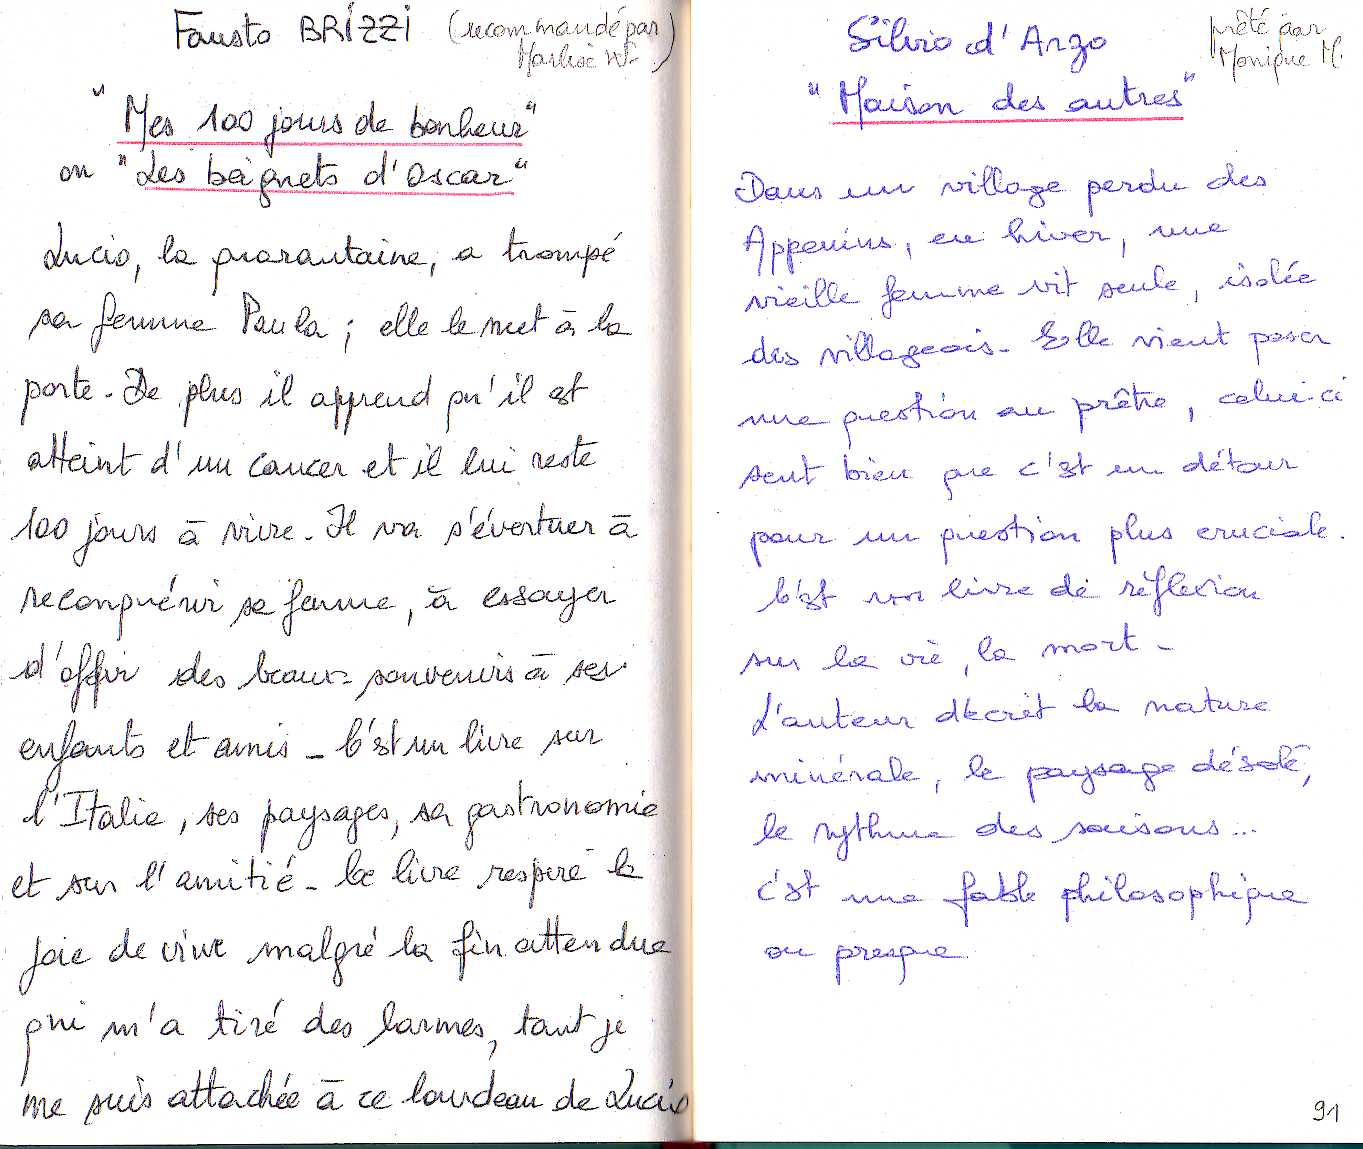 Fausto BRIZZI (recommandé par
Marlise W.)
"Mes 100 jours de bonheur"
ou "Les beignets d'Oscar"
Lucio, la quarantaine, a trompé
sa femme Paula ; elle le met à la
porte. De plus il apprend qu'il est
atteint d'un cancer et il lui reste
100 jours à vivre. Il va s'évertuer à
reconquérir sa femme, à essayer
d'offrir des beaux souvenirs à ses
enfants et amis - C'est un livre sur
l'Italie, ses paysages, sa gastronomie
et sur l'amitié - Ce livre respire la
joie de vivre malgré la fin attendue
qui m'a tiré des larmes, tant je
me suis attachée à ce lourdeau de Lucio
Silvio d'Arzo prêté par
Monique M.
"Maison des autres"
Dans un village perdu des
Appenins, en hiver, une
vieille femme vit seule, isolée
des villageois. Elle vient poser
une question au prêtre, celui-ci
sent bien que c'est un détour
pour un question plus cruciale.
C'est un livre de réflexion
sur la vie, la mort -
L'auteur décrit la nature
minérale, le paysage désolé,
le rythme des saisons...
c'est une fable philosophique
ou presque
91